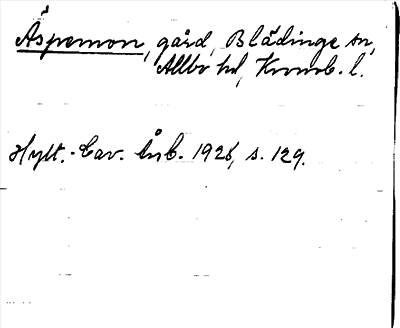 Äspemon, gård, Blädinge sn,
Allbo hd, Kronob. l.
Hylt.-Cav. Årsb. 1928, s. 129.